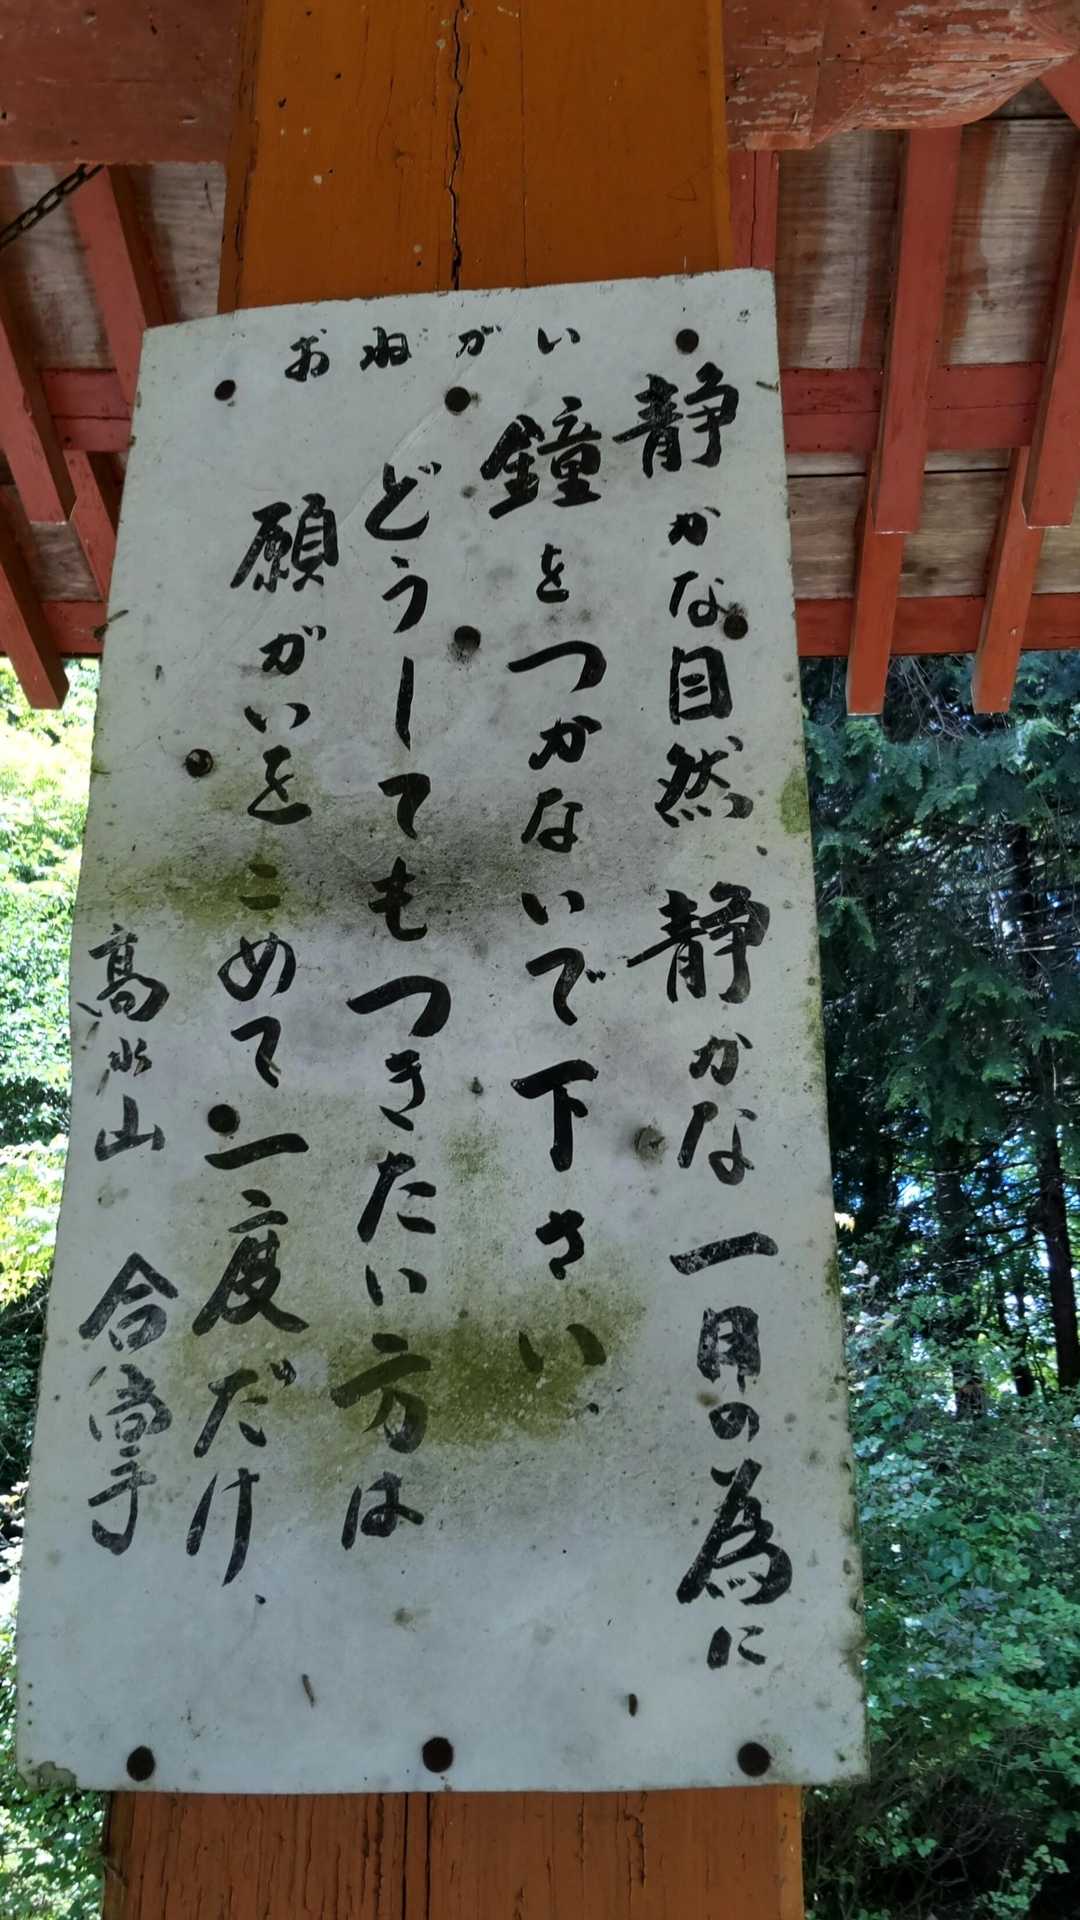 おねがい
静かな自然、静かな一日の為に
鐘をつかないで下さい、
どうしてもつきたい方は
願がいをこめて一度だけ、
高水山 合掌